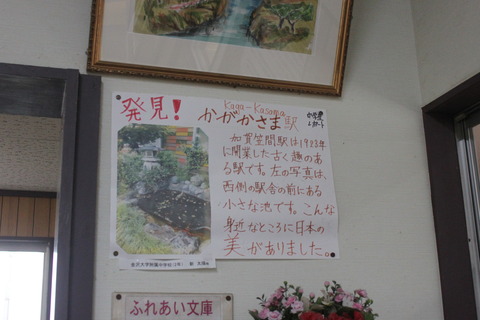 発見!
Kaga-Kasama
かがかさま駅
加賀笠間駅は1923年
に開業した古く趣のあ
る駅です。左の写真は、
西側の駅舎の前にある
小さな池です。こんな
身近なところに日本の
美がありました。
金沢大学附属中学校(1年)
ふれあい文庫